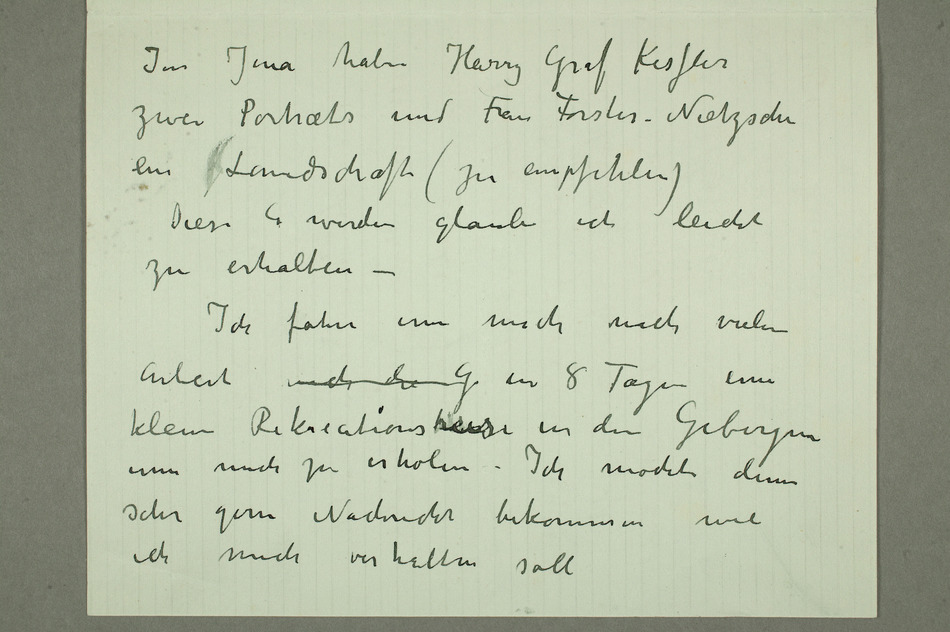 In Jena haben Harry Graf Kessler
zwei Portræts und Frau Förster-Nietzsche
ein Landschaft (zu empfehlen)
Diese 6 werden glaube ich leicht
zu erhalten —
Ich fahre um mich nach vielen
Arbeit nach die G in 8 Tagen eine
kleine Rekreationsreise in den Gebergen
um mich zu erholen - Ich möchte denn
sehr gern Nachricht bekommen wie
ich mich verhalten soll